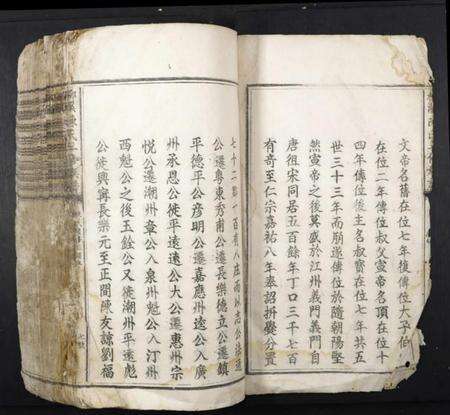 文帝名蒨在位七年後傳位太子伯
在位二年傳位叔父宣帝名頊在位十
四年傳位後主名叔寶在位七年共五
世三十三年而朋遂傳位於隨朝陽堅
然宣帝之後莫盛於江州義門義門自
唐祖宋同居五百餘年丁口三千七百
有奇至仁宗嘉祐八年奉詔拆爨分置
七十二郡一百有八庄南
公遷粵東秀甫公遷長樂德立公遷鎮
平德平公彦明公遷嘉應州逵公入廣
州承恩公徙平遠遠公大公遷惠州宗
悅公遷潮州章公入泉州魁公入汀州
西魁公之後玉銓公又徙潮州平遠彪
公徙興寧長樂元至正間陳友諒劉福